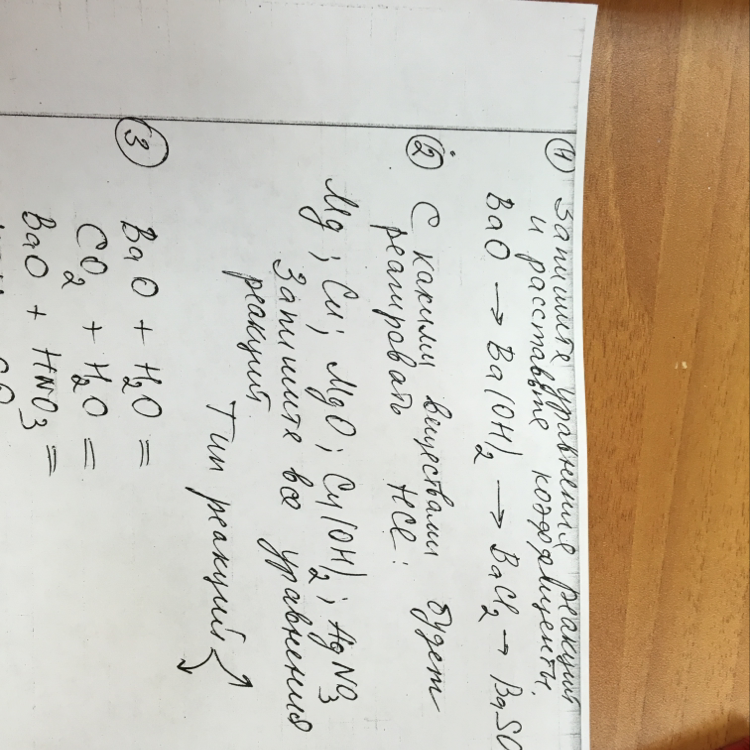 1 Запишите уравнения реакций
и расставьте коэффициенты.
BaO → Ba(OH)2 → BaCl2 → BaSO
2 С какими веществами будет
реагировать HCl:
Mg; Cu; MgO; Cu(OH)2; AgNO3
Запишите все уравнения
реакций.
Тип реакций
3 BaO + H2O =
CO2 + H2O =
BaO + HNO3 =